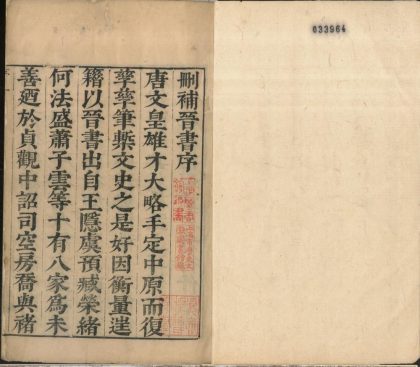 033964
刪補晉書序
唐文皇雄才大略手定中原而復
孳孳筆槧文史之是好因衡量𨓏
籍以晉書出自王隱虞預臧榮緒
何法盛蕭子雲等十有八家為未
善廼於貞觀中詔司空房喬與禇